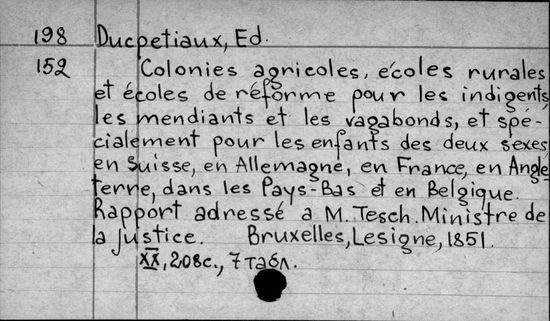 198 Ducpetiaux, Ed.
152 Colonies agricoles, écoles rurales
et écoles de réforme pour les indigents
les mendiants et les vagabonds, et spé-
cialement pour les enfants des deux sexes
en Suisse, en Allemagne, en France, en Angle
terre, dans les Pays-Bas et en Belgique.
Rapport adressé a M. Tesch. Ministre de
la justice. Bruxelles, Lesigne, 1851.
XX, 208с., 7 табл.